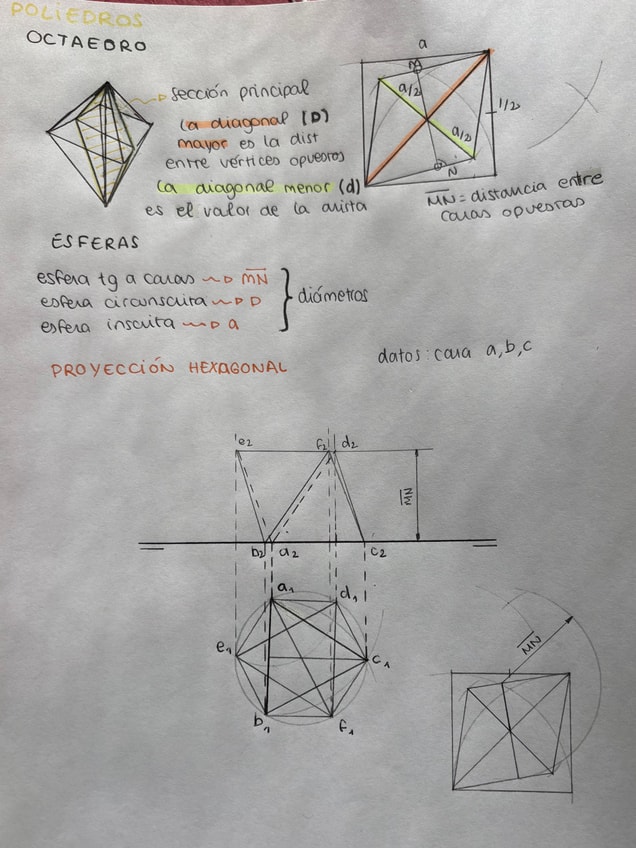 POLIEDROS
OCTAEDRO
sección principal
la diagonal (D)
mayor es la dist
entre vértices opuestos
la diagonal menor (d)
es el valor de la arista
a
M
a/2
a/2
1/2
N
MN = distancia entre
caras opuestas
ESFERAS
esfera tg a caras MN
esfera circunscrita D
esfera inscrita a
diámetros
PROYECCIÓN HEXAGONAL
datos: cara a,b,c
e2 f2 d2
MN
b2 a2 c2
a1 d1
e1 c1
b1 f1
MN